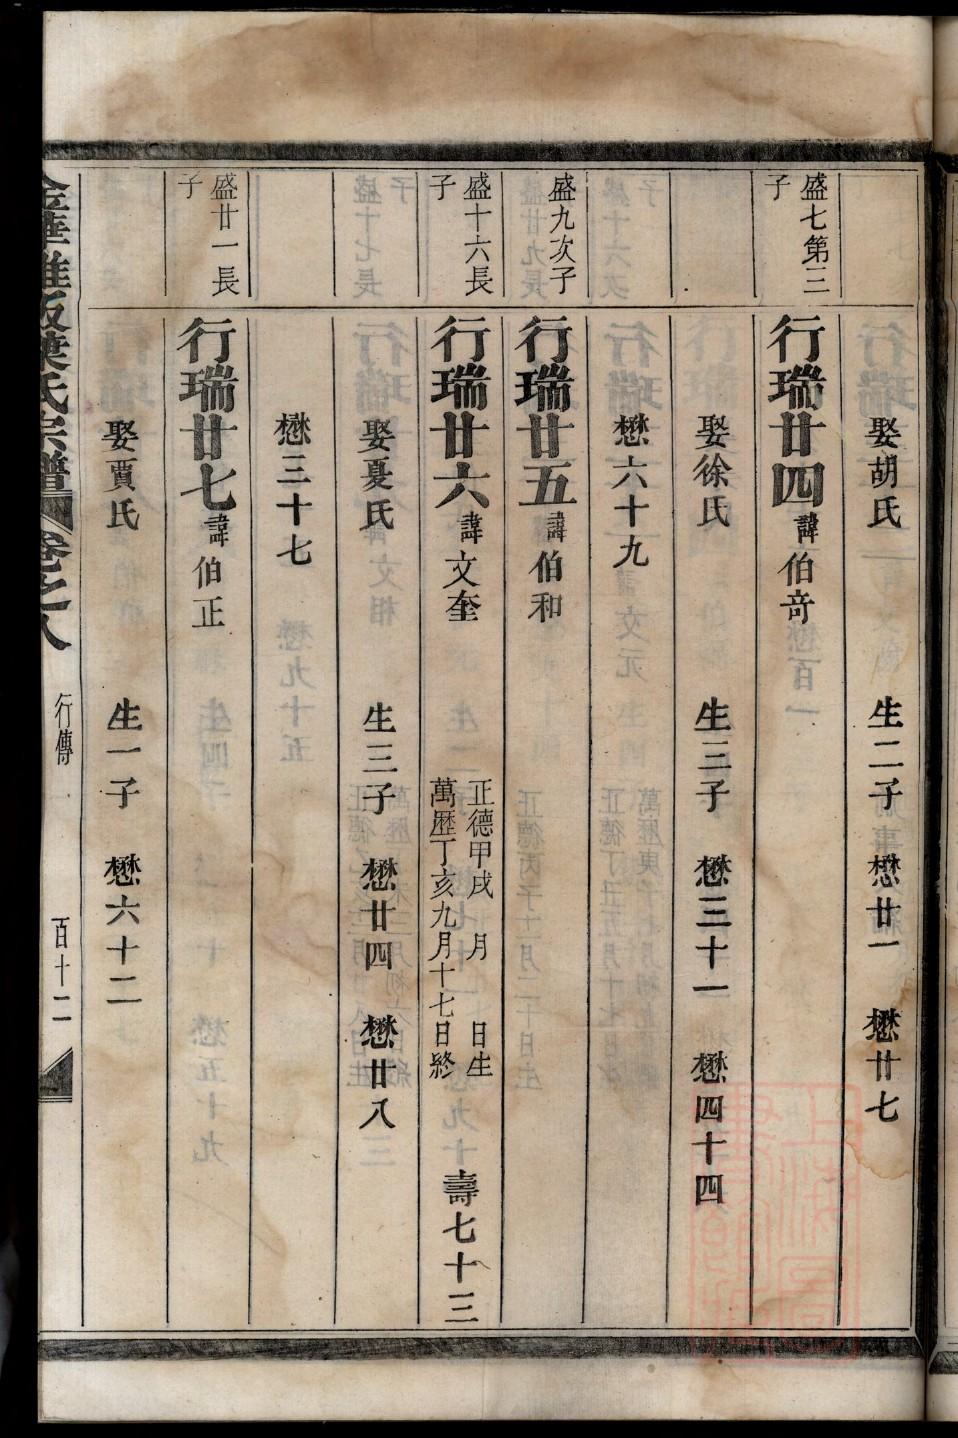 娶胡氏 生二子 懋廿一 懋廿七
盛七第三子
行瑞廿四 諱伯奇
娶徐氏 生三子 懋三十一 懋四十四
懋六十九
盛九次子
行瑞廿五 諱伯和
盛十六長子
行瑞廿六 諱文奎 正德甲戌 月 日生
萬歷丁亥九月十七日終 壽七十三
娶夏氏 生三子 懋廿四 懋廿八
懋三十七
盛廿一長子
行瑞廿七 諱伯正
娶賈氏 生一子 懋六十二
金華雅畈葉氏宗譜 卷之八 行傳 百十二